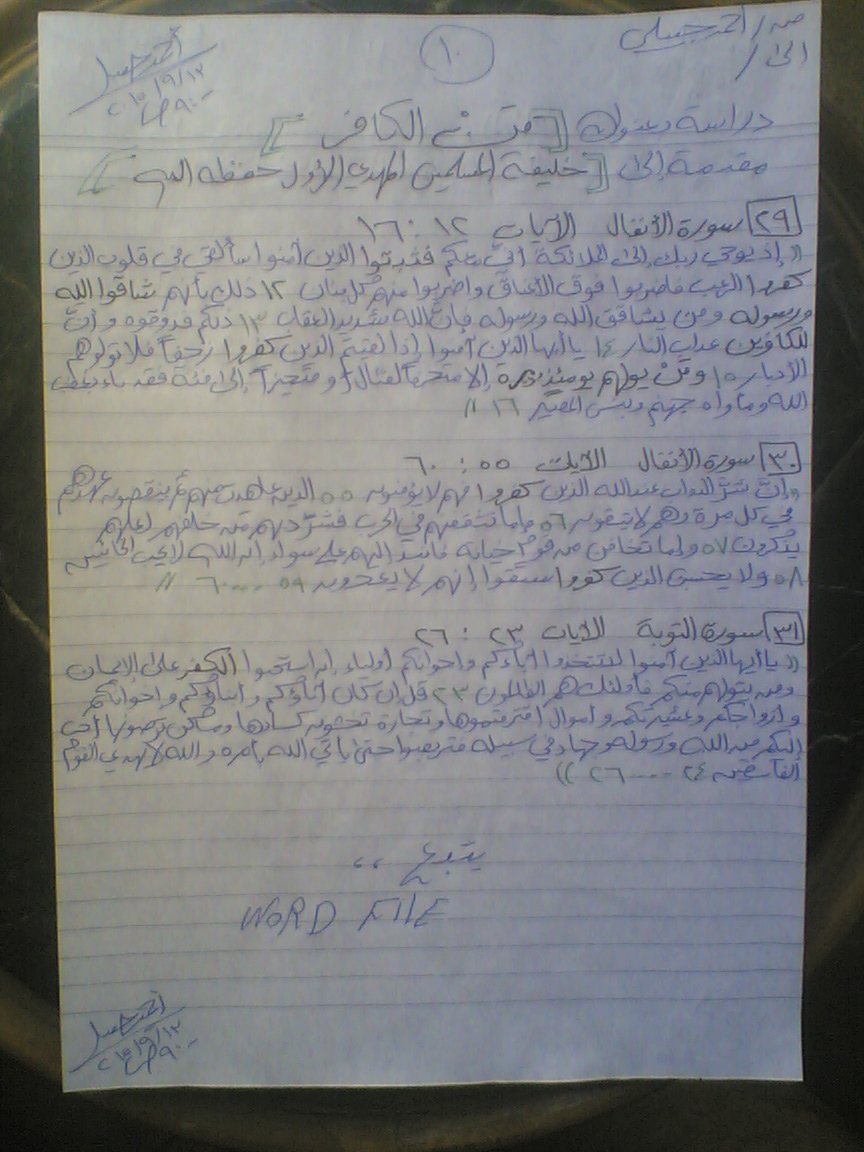 من/ أحمد جبيلي
إلى/
١٠
أحمد
٢٠١٥/٩/١٢
دراسة بعنوان [ من هو الكافر ]
مقدمة إلى [ خليفة المسلمين المهدي الأول حفظه الله ]
٢٩ سورة الأنفال الآيات ١٢ : ١٦
(( إذ يوحي ربك إلى الملائكة أنيّ معكم فثبتوا الذين آمنوا سألقي في قلوب الذين
كفروا الرعب فاضربوا فوق الأعناق واضربوا منهم كل بنان ١٢ ذلك بأنهم شاقوا الله
ورسوله ومن يشاقق الله ورسوله فإنّ الله شديد العقاب ١٣ ذلكم فذوقوه وأنّ
للكافرين عذاب النار ١٤ يا أيها الذين آمنوا إذا لقيتم الذين كفروا زحفاً فلا تولوهم
الأدبار ١٥ ومن يولهم يومئذ دبره إلا متحرفاً لقتال أو متحيزاً إلى فئة فقد باء بغضب
الله ومأواه جهنم وبئس المصير ١٦ ))
٣٠ سورة الأنفال الآيات ٥٥ : ٦٠
(( إنّ شرّ الدواب عند الله الذين كفروا فهم لا يؤمنون ٥٥ الذين عاهدت منهم ثم ينقضون عهدهم
في كل مرة وهم لا يتقون ٥٦ فإما تثقفنهم في الحرب فشرّد بهم من خلفهم لعلهم
يذّكرون ٥٧ وإما تخافن من قوم خيانة فانبذ إليهم على سواء إن الله لا يحب الخائنين
٥٨ ولا يحسبن الذين كفروا سبقوا إنهم لا يعجزون ٥٩ .... ٦٠ ))
٣١ سورة التوبة الآيات ٢٣ : ٢٦
(( يا أيها الذين آمنوا لا تتخذوا آباءكم وإخوانكم أولياء إن استحبوا الكفر على الإيمان
ومن يتولهم منكم فأولئك هم الظالمون ٢٣ قل إن كان آباؤكم وأبناؤكم وإخوانكم
وأزواجكم وعشيرتكم وأموال اقترفتموها وتجارة تخشون كسادها ومساكن ترضونها أحب
إليكم من الله ورسوله وجهاد في سبيله فتربصوا حتى يأتي الله بأمره والله لا يهدي القوم
الفاسقين ٢٤ .... ٢٦ ))
يتبع ،،
WORD FILE
أحمد
٢٠١٥/٩/١٢